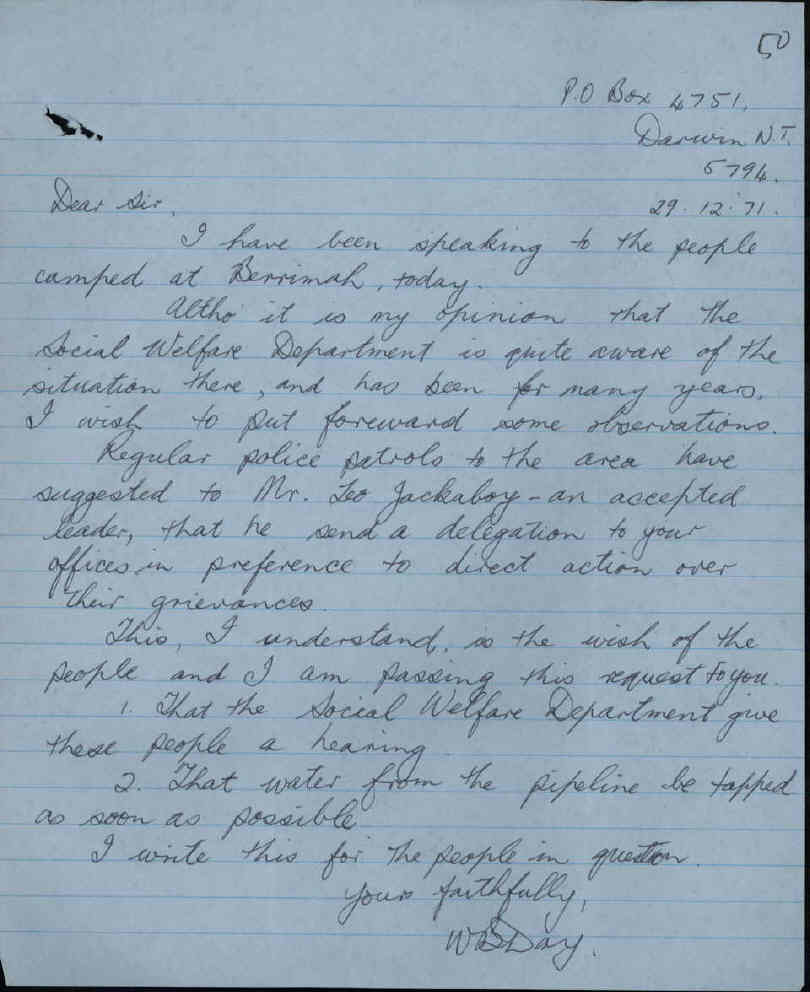 50
P.O Box 4751,
Darwin N.T.
5794.
29.12.71.
Dear Sir,
I have been speaking to the people
camped at Berrimah, today.
Altho' it is my opinion that the
Social Welfare Department is quite aware of the
situation there, and has been for many years,
I wish to put foreward some observations.
Regular police patrols to the area have
suggested to Mr. Leo Jackaboy - an accepted
leader, that he send a delegation to your
offices in preference to direct action over
their grievances.
This, I understand, is the wish of the
people and I am passing this request to you.
1. That the Social Welfare Department give
these people a hearing.
2. That water from the pipeline be tapped
as soon as possible
I write this for the people in question.
Yours faithfully,
WBDay.